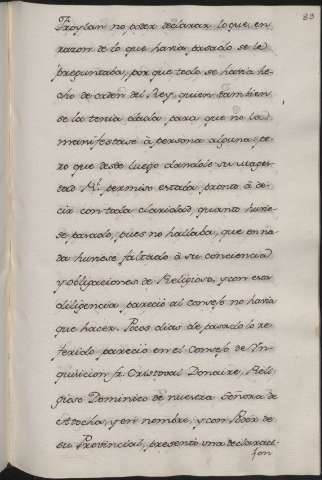 83
Froylan no poder declarar lo que, en
razon de lo que havia pasado se le
preguntaba, porque todo se havia he-
cho de orden del Rey, quien tambien
se la tenia dada para que no la
manifestase â persona alguna; pe-
ro que desde luego dandole su Mages-
tad Rl. permiso estaba pronto â de-
cir con toda claridad, quanto huvie-
se pasado, pues no hallaba, que en na-
da huviese faltado â su conciencia
y obligaciones de Religioso, y con esta
diligencia pareció al Consejo no havia
que hacer. Pocos dias de pasado lo re-
ferido pareció en el Consejo de Yn-
quisicion fr. Cristoval Donaire, Reli-
gioso Dominico de nuestra Señora de
Atocha, y en nombre, y con Poder de
su Provincial, presentó una declaraci-
on